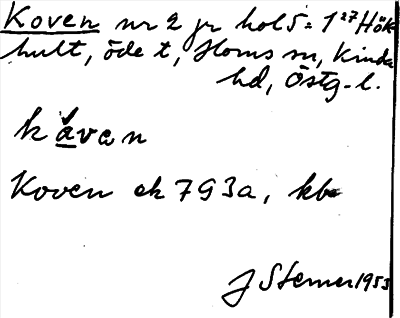 Koven nr 2 jr hol 5 = 1²⁷ Hök
hult, öde t, Horns sn, Kinda
hd, Östg. l.
kåvan
Koven ek 7G3a, kb
J Sterner 1953